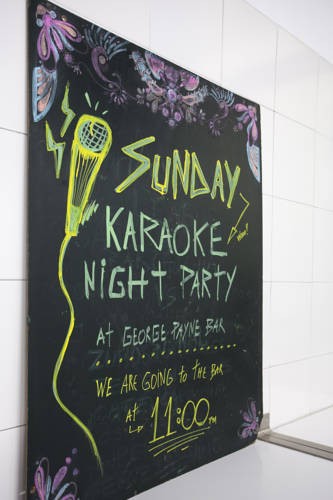 SUNDAY
KARAOKE
NIGHT PARTY
AT GEORGE PAYNE BAR
WE ARE GOING TO THE BAR
AT 11:00 PM